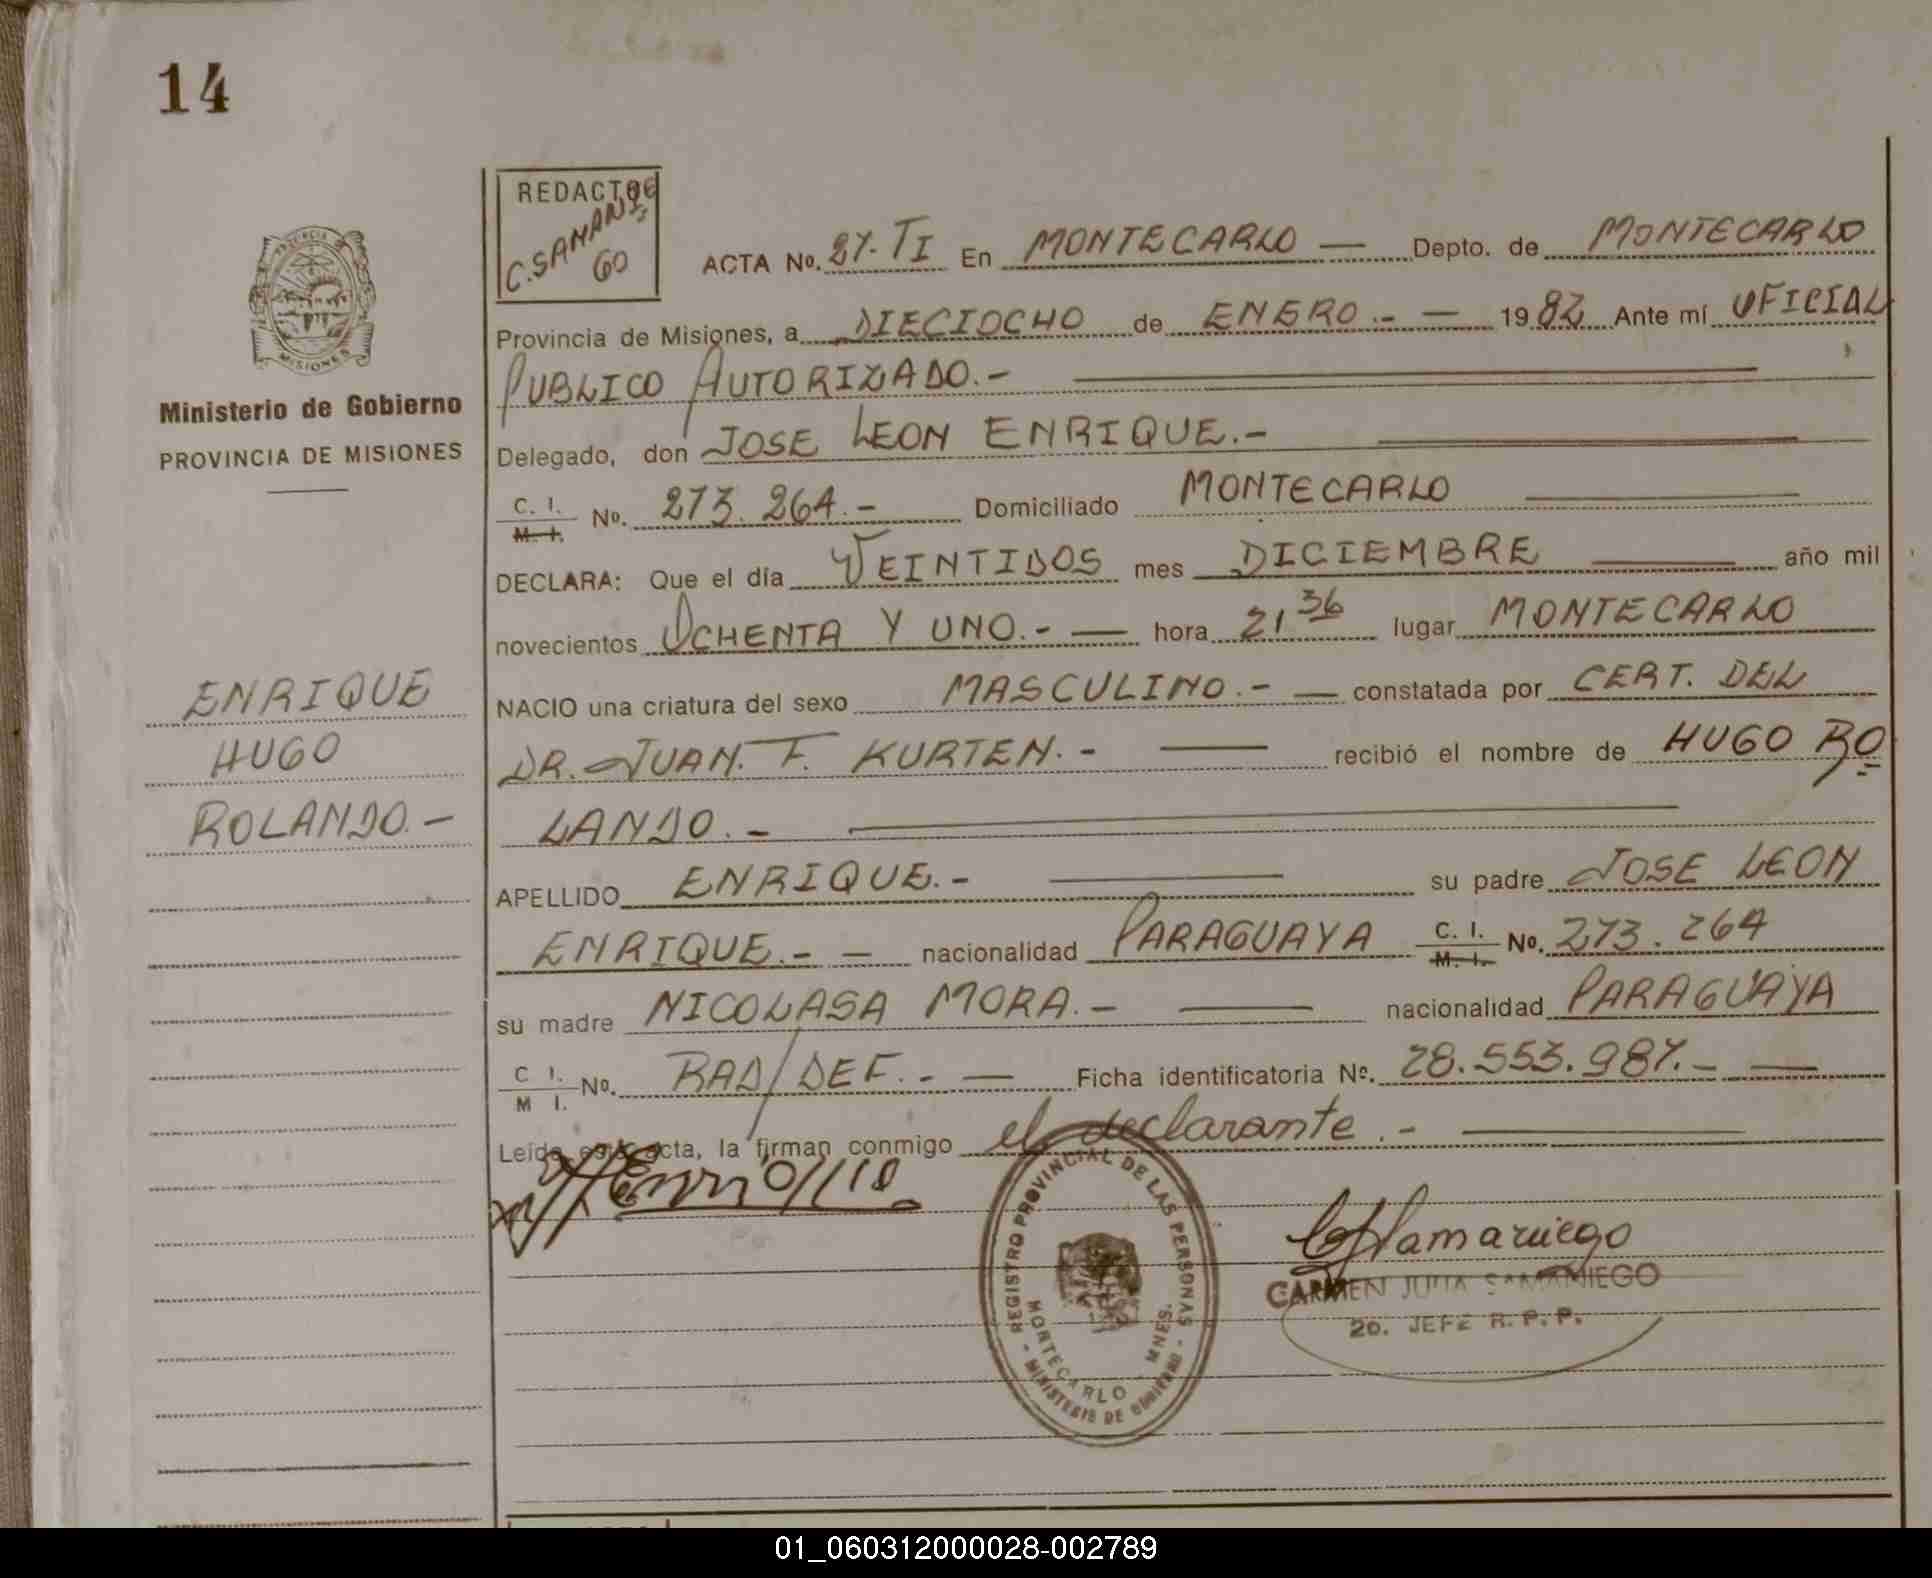 14
REDACTOR
C. SAMANIE
GO
ACTA No. 27. TI En MONTECARLO — Depto. de MONTECARLO
Provincia de Misiones, a DIECIOCHO de ENERO.- — 1982 Ante mí OFICIAL
PUBLICO AUTORIZADO.-
Delegado, don JOSE LEON ENRIQUE.-
C. I.
M. I. No. 273.264.- Domiciliado MONTECARLO
DECLARA: Que el día VEINTIDOS mes DICIEMBRE año mil
novecientos OCHENTA Y UNO.- — hora 21 36 lugar MONTECARLO
NACIO una criatura del sexo MASCULINO.- — constatada por CERT. DEL
DR. JUAN. F. KURTEN.- — recibió el nombre de HUGO RO
LANDO.-
APELLIDO ENRIQUE.- — su padre JOSE LEON
ENRIQUE.- — nacionalidad PARAGUAYA C. I.
M. I. No. 273.264
su madre NICOLASA MORA.- — nacionalidad PARAGUAYA
C I.
M I. No. RAD/DEF.- — Ficha identificatoria No. 28.553.987.- —
Leída esta acta, la firman conmigo el declarante.-
MISIONES
Ministerio de Gobierno
PROVINCIA DE MISIONES
ENRIQUE
HUGO
ROLANDO.-
REGISTRO PROVINCIAL DE LAS PERSONAS
MONTECARLO - MNES.
- MINISTERIO DE GOBIERNO -
CJSamaniego
CARMEN JULIA SAMANIEGO
2o. JEFE R. P. P.
01_060312000028-002789